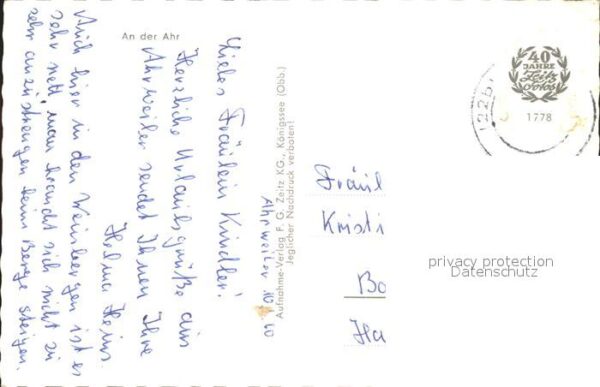 An der Ahr
Ahrweiler
Liebes Fräulein Kindler!
Herzliche Urlaubsgrüße aus
Ahrweiler sendet Ihnen Ihre
Helma Heins.
Auch hier in den Weinbergen ist es
sehr nett, man braucht sich nicht zu
sehr anzustrengen beim Berge steigen.
Aufnahme-Verlag P. G. Zeitz KG., Königssee (Obb.)
Jeglicher Nachdruck verboten!
40
JAHRE
Zeitz
Fotos
1778
(22b)
Fräul
Kristi
Bo
Ha
privacy protection
Datenschutz